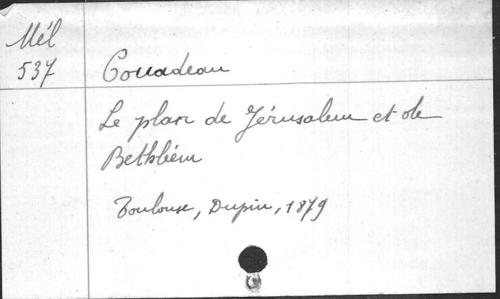 Mél
537
Couadeau
Le plan de Jérusalem et de
Bethléem
Toulouse, Dupin, 1879